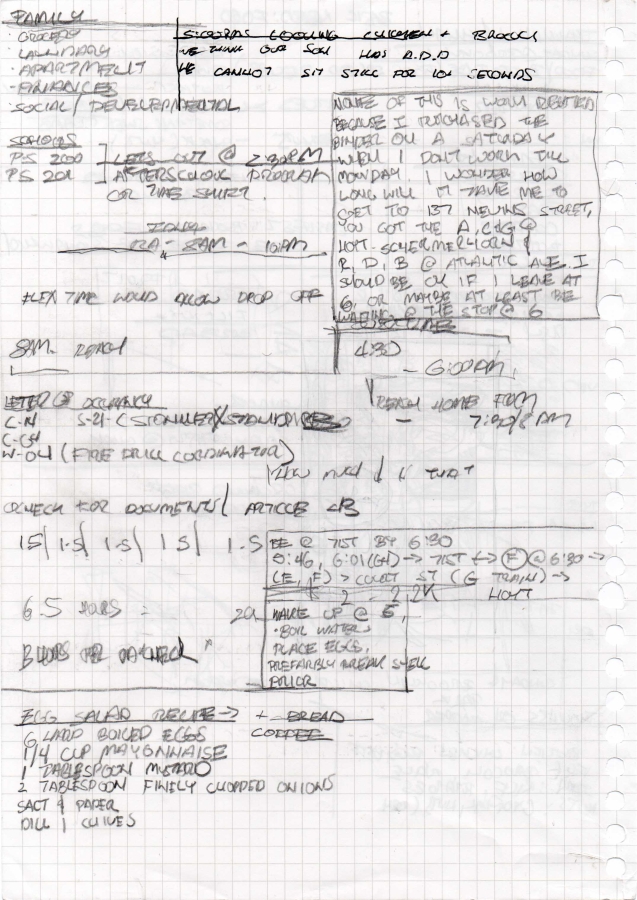 FAMILY
· GROCERY
· LAUNDRY
· APARTMENT
· FINANCES
· SOCIAL / DEVELOPMENTAL
COOKING CHICKEN + BROCCLI
WE THINK OUR SON HAS A.D.D
HE CANNOT SIT STILL FOR 10+ SECONDS
NONE OF THIS IS WORK RELATED
BECAUSE I PURCHASED THE
BINDER ON A SATURDAY
WHEN I DON'T WORK TILL
MONDAY. I WONDER HOW
LONG WILL IT TAKE ME TO
GET TO 137 NEVINS STREET,
YOU GOT THE A, C & G @
HOYT-SCHERMERHORN &
R, D, B @ ATLANTIC AVE. I
SHOULD BE OK IF I LEAVE AT
6, OR MAYBE AT LEAST BE
WAITING @ THE STOP @ 6
SCHOOLS
PS 200
PS 201
LETS OUT @ 2:30PM
AFTERSCHOOL PROGRAM
OR TIME SHIFT.
- 8AM - 10AM
FLEX TIME WOULD ALLOW DROP OFF
8AM. REACH
4:30
- 6:00AM,
REACH HOME FROM
- 7:30/8 AM
LETTER OF OCCUPANCY
C-14
W-04 (FIRE DRILL COORDINATOR)
HOW MUCH THAT
CHECK FOR DOCUMENTS / ARTICLE
1.5 | 1.5 | 1.5 | 1.5 | 1.5
BE @ 71ST BY 6:30
5:46, 6:01 (Q4) → 71ST ↔ (F) @ 6:30 →
(E, F) > COURT ST (G TRAIN) →
HOYT
2 - 2.2K
6.5 HOURS =
WAKE UP @ 5,
· BOIL WATER,
PLACE EGGS,
PREFARBLY BREAK SHELL
PRIOR
EGG SALAD RECIPE → + BREAD
COFFEE
6 HARD BOILED EGGS
1/4 CUP MAYONNAISE
1 TABLESPOON MUSTARD
2 TABLESPOON FINELY CHOPPED ONIONS
SALT & PAPER
DILL | CHIVES